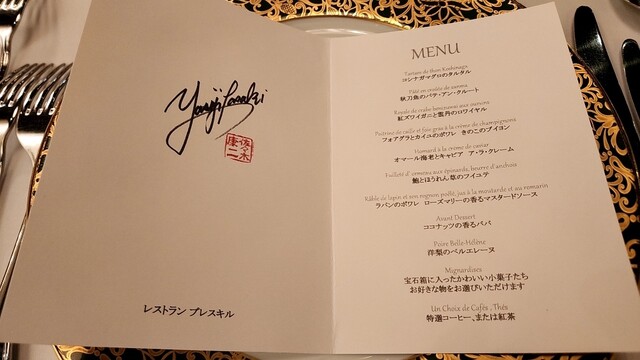 Yasuji Sasaki
佐々木
康二
レストラン プレスキル
MENU
Tartare de thon Koshinaga
コシナガマグロのタルタル
Pâté en croûte de samma
秋刀魚のパテ・アン・クルート
Royale de crabe benizuwai aux oursins
紅ズワイガニと雲丹のロワイヤル
Poitrine de caille et foie gras à la crème de champignons
フォアグラとカイユのポワレ きのこのブイヨン
Homard à la crème de caviar
オマール海老とキャビア ア・ラ・クレーム
Feuilleté d'ormeau aux épinards, beurre d'anchois
鮑とほうれん草のフイユテ
Râble de lapin et son rognon poêlé, jus à la moutarde et au romarin
ラパンのポワレ ローズマリーの香るマスタードソース
Avant Dessert
ココナッツの香るババ
Poire Belle-Hélène
洋梨のベルエレーヌ
Mignardises
宝石箱に入ったかわいい小菓子たち
お好きな物をお選びいただけます
Un Choix de Cafés , Thés
特選コーヒー、または紅茶